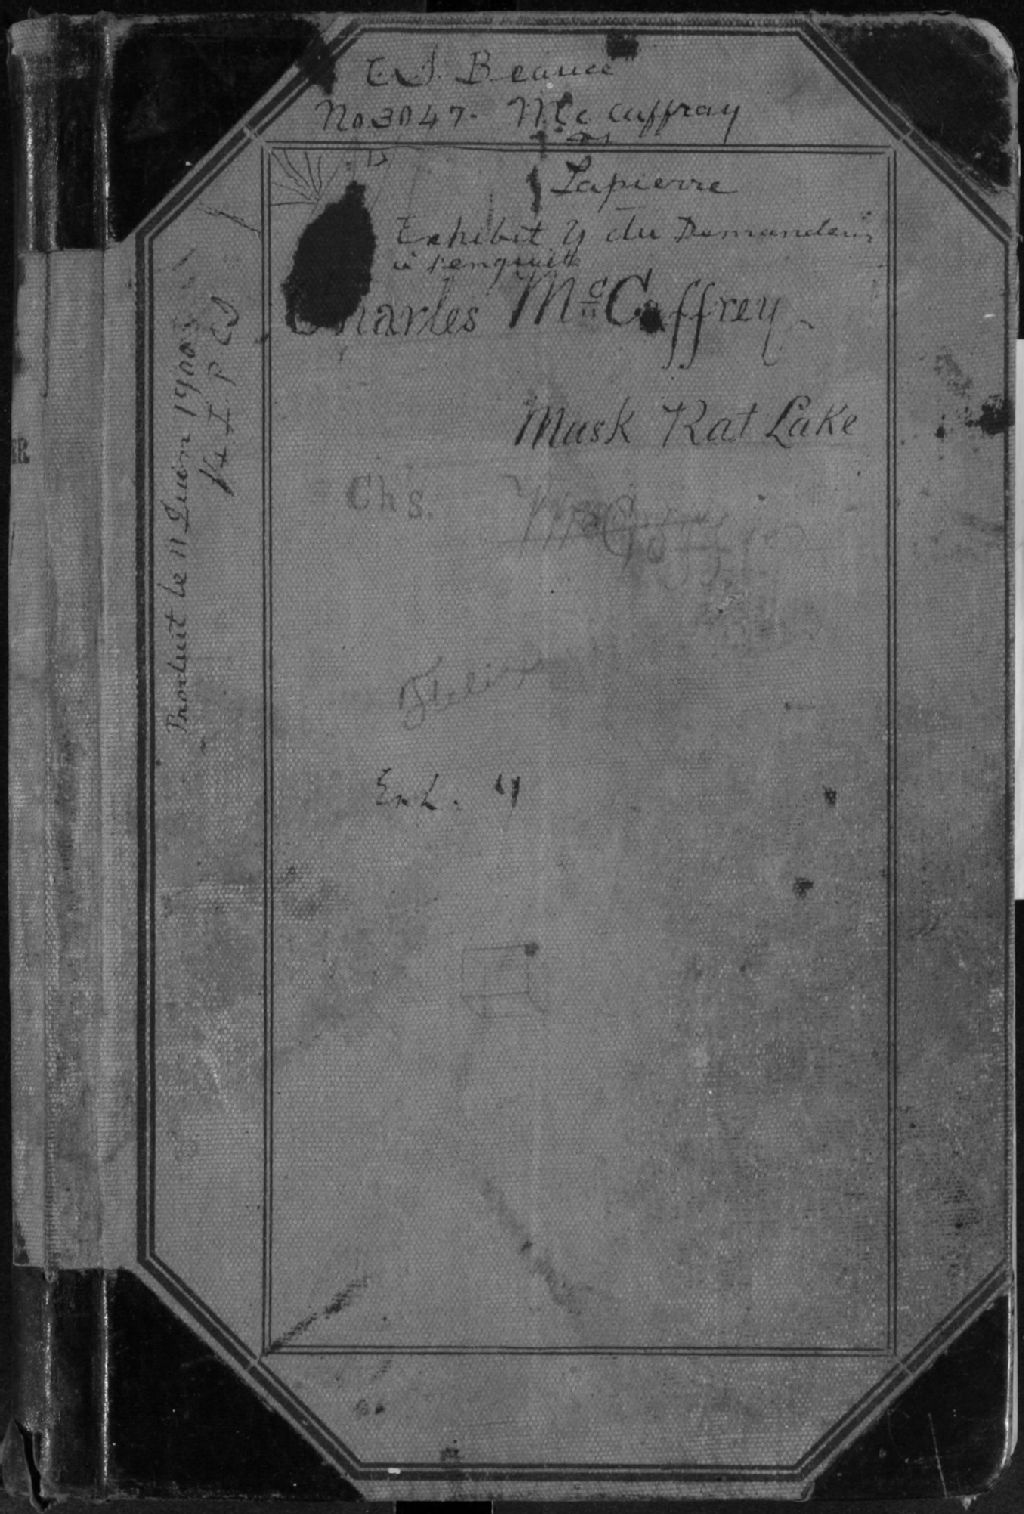 C.S. Beauce
No 3047. McCaffray
vs
Lapierre
Exhibit Y du Demandeur
à l'enquete
Charles McCaffrey
Musk Rat Lake
Chs. McCaffrey
Felix
Exh. Y
Produit le 11 Juin 1900